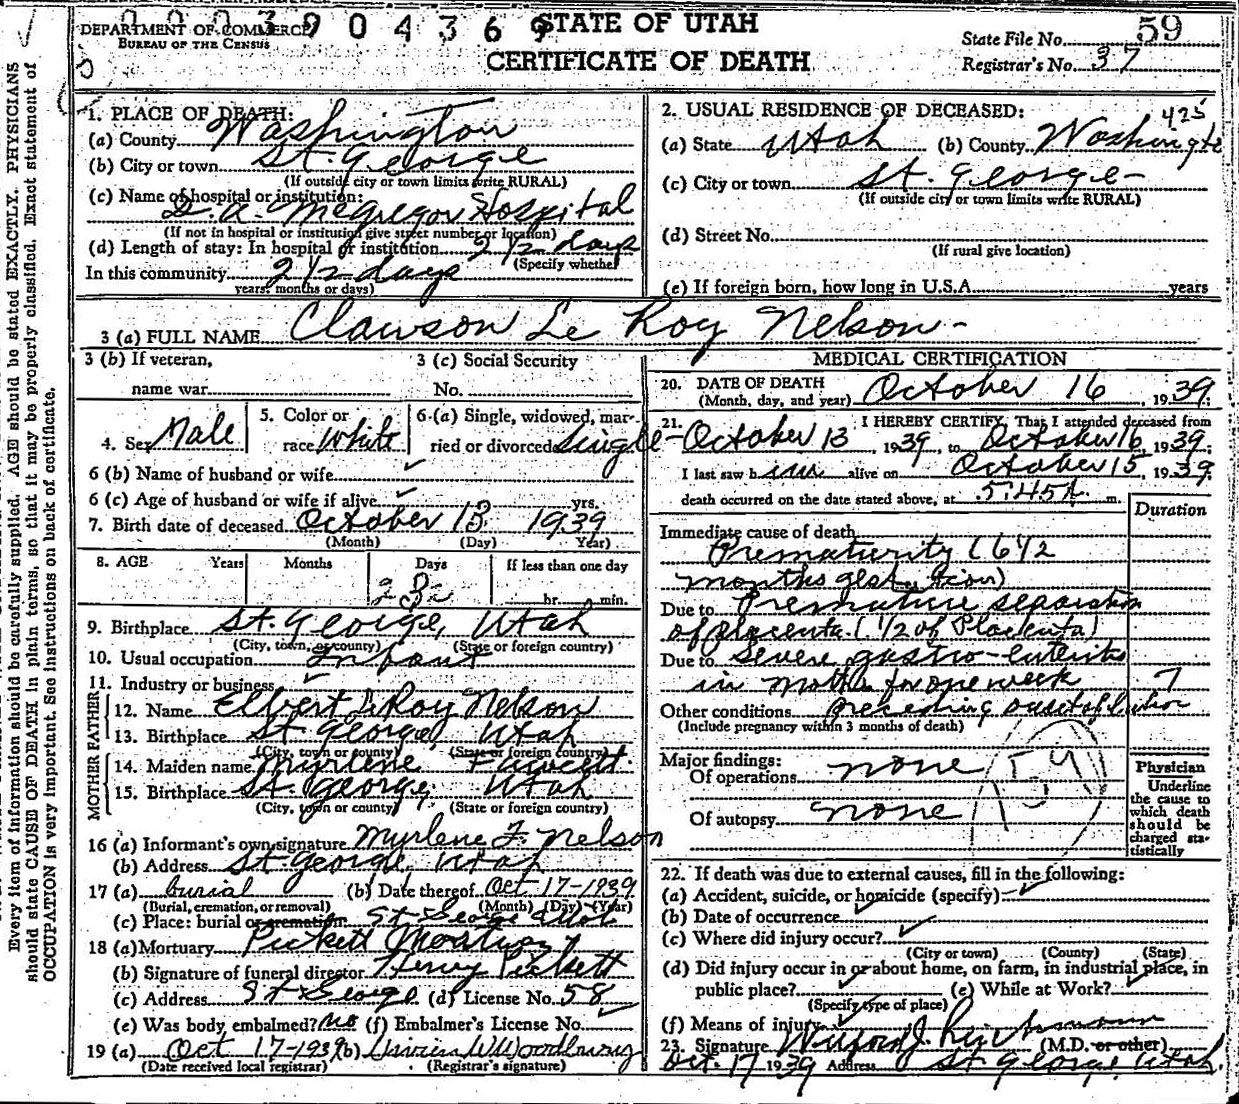 0003904369
STATE OF UTAH
CERTIFICATE OF DEATH
DEPARTMENT OF COMMERCE
BUREAU OF THE CENSUS
State File No. 59
Registrar's No. 37
Every item of information should be carefully supplied. AGE should be stated EXACTLY. PHYSICIANS
should state CAUSE OF DEATH in plain terms, so that it may be properly classified. Exact statement of
OCCUPATION is very important. See instructions on back of certificate.
1. PLACE OF DEATH:
(a) County Washington
(b) City or town St. George
(If outside city or town limits write RURAL)
(c) Name of hospital or institution:
D. A. McGregor Hospital
(If not in hospital or institution give street number or location)
(d) Length of stay: In hospital or institution 2 1/2 days
(Specify whether
In this community 2 1/2 days
years, months or days)
2. USUAL RESIDENCE OF DECEASED:
425
(a) State Utah (b) County Washingto
(c) City or town St. George-
(If outside city or town limits write RURAL)
(d) Street No.
(If rural give location)
(e) If foreign born, how long in U.S.A. years
3 (a) FULL NAME Clawson Le Roy Nelson-
3 (b) If veteran,
name war
3 (c) Social Security
No.
4. Sex Male
5. Color or
race White
6 (a) Single, widowed, mar-
ried or divorced Single-
6 (b) Name of husband or wife
6 (c) Age of husband or wife if alive yrs.
7. Birth date of deceased October 13 1939
(Month) (Day) Year)
8. AGE Years Months Days If less than one day
hr. min.
9. Birthplace St. George, Utah
(City, town, or county) (State or foreign country)
10. Usual occupation Infant
11. Industry or business
FATHER
12. Name Elbert LeRoy Nelson
13. Birthplace St George, Utah
(City, town or county) (State or foreign country)
MOTHER
14. Maiden name Myrlene Fawcett
15. Birthplace St. George, Utah
(City, town or county) (State or foreign country)
16 (a) Informant's own signature Myrlene F. Nelson
(b) Address St. George Utah
17 (a) burial (b) Date thereof Oct 17-1939
(Burial, cremation, or removal) (Month) (Day) (Year)
(c) Place: burial or cremation St George Utah
18 (a) Mortuary Pickett Mortuary
(b) Signature of funeral director Henry Pickett
(c) Address St George (d) License No. 58
(e) Was body embalmed? No (f) Embalmer's License No.
19 (a) Oct 17-1939 (b) Woodbury
(Date received local registrar) (Registrar's signature)
MEDICAL CERTIFICATION
20. DATE OF DEATH
(Month, day, and year) October 16, 1939.
21. I HEREBY CERTIFY, That I attended deceased from
October 13, 1939, to October 16, 1939.
I last saw h im alive on October 15, 1939
death occurred on the date stated above, at 5:45 A. m.
Duration
Immediate cause of death
Prematurity (6 1/2
months gestation)
Due to Premature separation
of placenta (1/2 of Placenta)
Due to Severe gastro-enteritis
in mother for one week 7
Other conditions preceding onset of labor
(Include pregnancy within 3 months of death)
Major findings:
Of operations none
Of autopsy none
159
Physician
Underline
the cause to
which death
should be
charged sta-
tistically
22. If death was due to external causes, fill in the following:
(a) Accident, suicide, or homicide (specify)
(b) Date of occurrence
(c) Where did injury occur?
(City or town) (County) (State)
(d) Did injury occur in or about home, on farm, in industrial place, in
public place? (e) While at Work?
(Specify type of place)
(f) Means of injury
23. Signature Wilford J. (M.D. or other)
Oct. 17 1939 Address St. George, Utah.